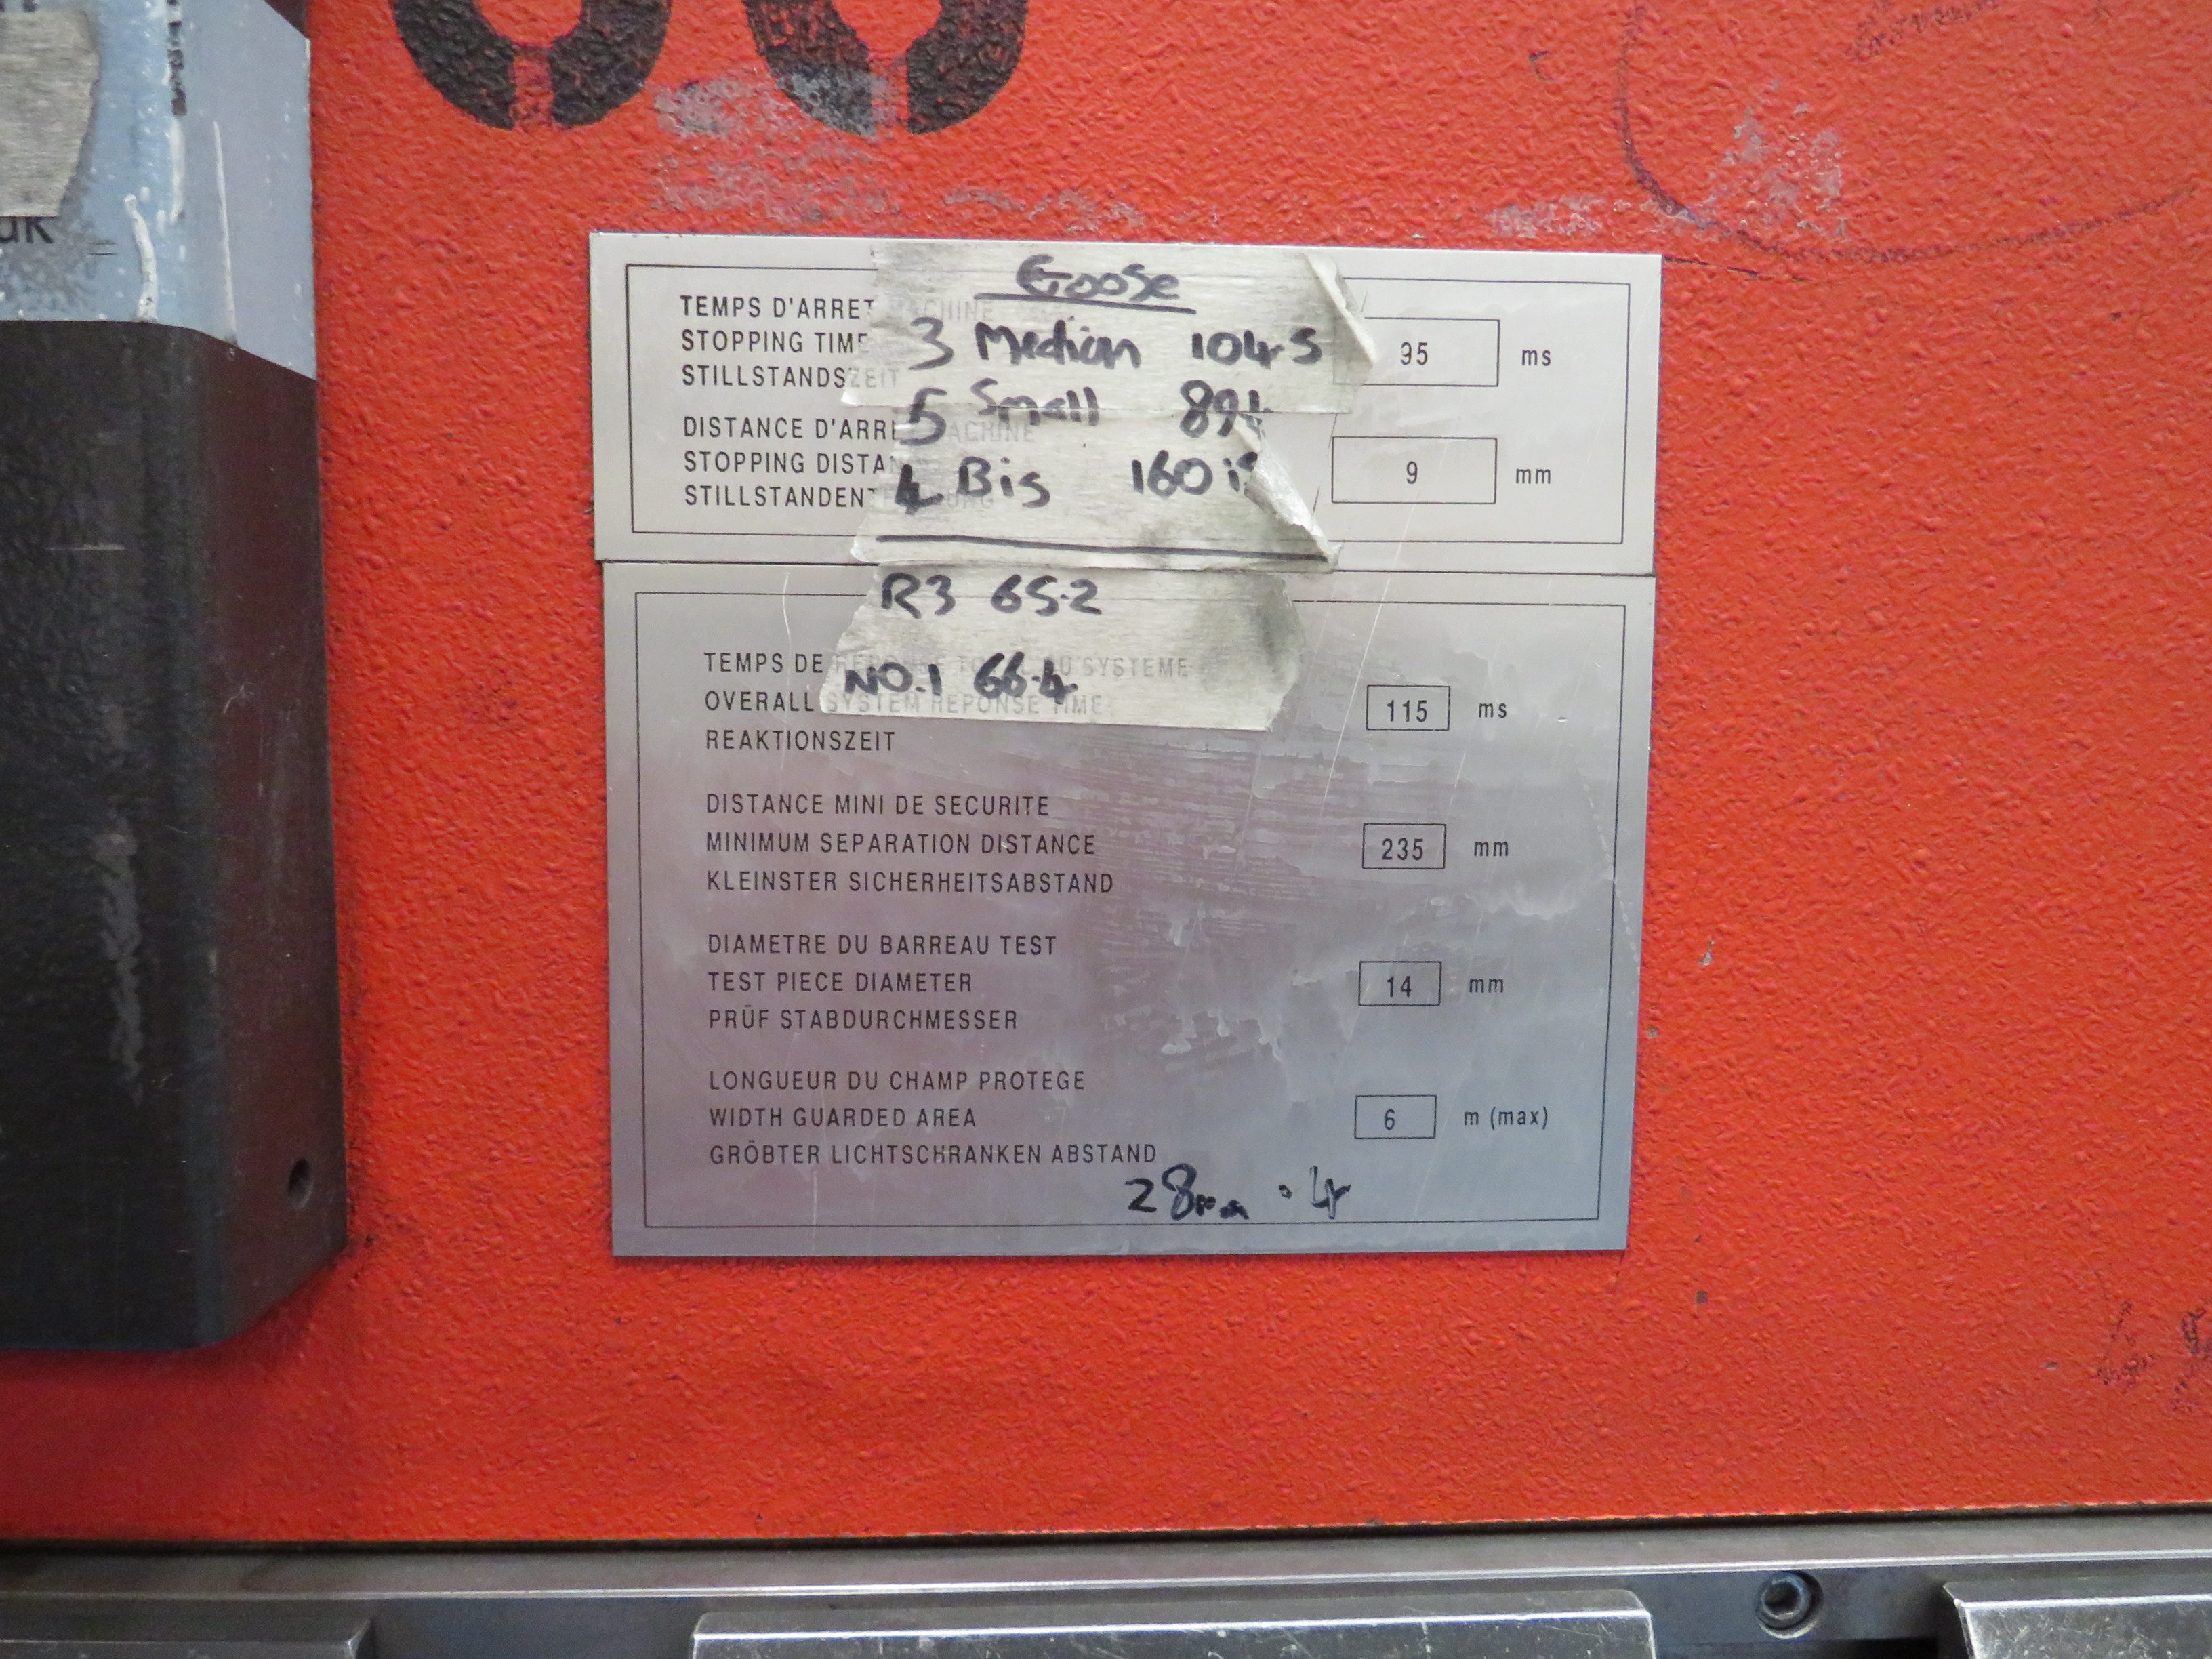 uk
Goose
3 Medium 104.5
5 Small
4
R3 65.2
NO.1 66.4
TEMPS D'ARRET MACHINE
STOPPING TIME
STILLSTANDSZEIT
95 ms
DISTANCE D'ARRET MACHINE
STOPPING
9 mm
TEMPS DE REPONSE TOTAL DU SYSTEME
OVERALL SYSTEM REPONSE TIME
REAKTIONSZEIT
115 ms
DISTANCE MINI DE SECURITE
MINIMUM SEPARATION DISTANCE
KLEINSTER SICHERHEITSABSTAND
235 mm
DIAMETRE DU BARREAU TEST
TEST PIECE DIAMETER
PRÜF STABDURCHMESSER
14 mm
LONGUEUR DU CHAMP PROTEGE
WIDTH GUARDED AREA
GRÖBTER LICHTSCHRANKEN ABSTAND
6 m (max)
28mm .4